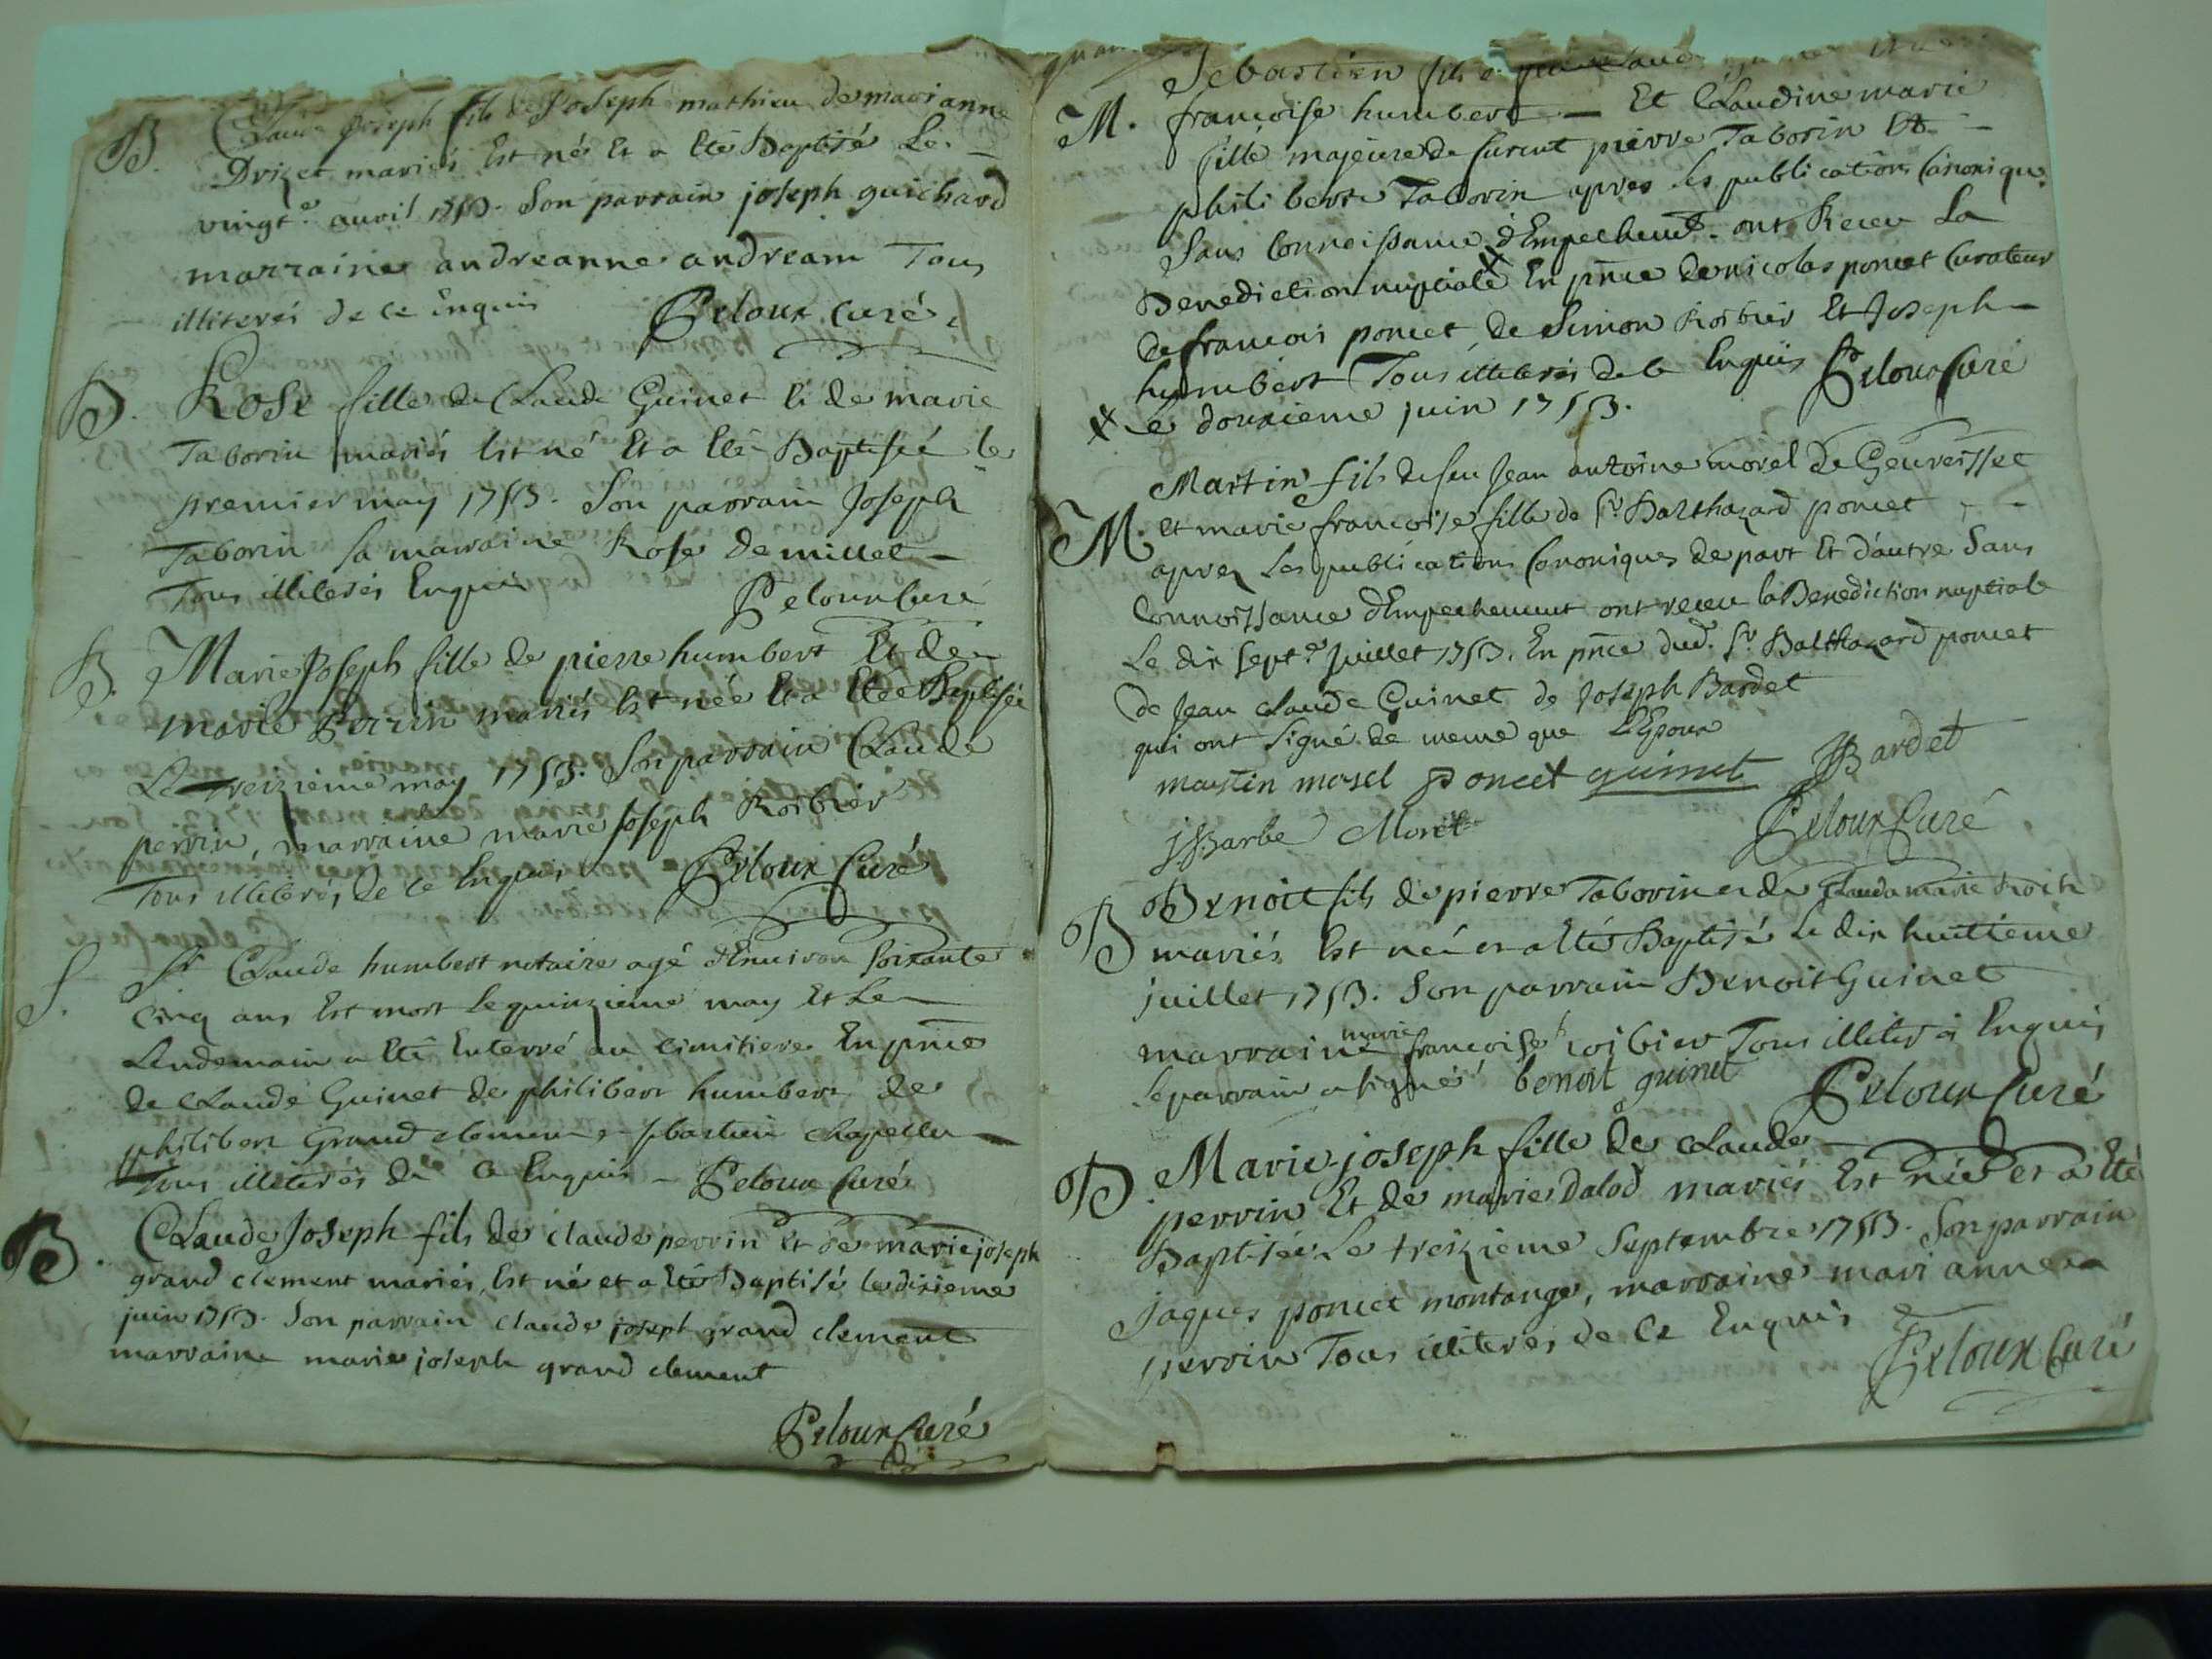 B. Claude Joseph fils de Joseph mathieu de mari anne
Drizet mariés Est né Et a Eté Baptisé Le
vingt.e avril 1753. Son parrain joseph guichard
marraine andreanne andream Tous
illiterés de ce Enquis Peloux Curé
B. Rose fille de Claude Guinet Et de marie
Taborin mariés Est né Et a Eté Baptisée le
premier may 1753. Son parrain Joseph
Taborin sa marraine Rose de millet
Tous illiterés Enquis Peloux Curé
B. Marie Joseph fille de pierre humbert Et de
marie Perrin mariés Est née Et a Eté Baptisée
Le treizieme may 1753. Son parrain Claude
perrin, marraine marie Joseph Roibier
Tous illiterés de ce Enquis Peloux Curé
S. Sr Claude humbert notaire agé d'Environ soixante
cinq ans Est mort le quinzieme may Et Le
Lendemain a Eté Enterré au cimitiere En pnce
de Claude Guinet de philibert humbert de
philibert Grand clement sebastien chapellu
Tous illiterés de ce Enquis Peloux Curé
B. Claude Joseph fils de claude perrin Et de marie joseph
grand clement mariés, Est né et a Eté Baptisé le dixieme
juin 1753. Son parrain claude joseph grand clement
marraine marie joseph grand clement
Peloux Curé
Sebastien fils
M. francoise humbert — Et Claudine marie
fille majeure de furent pierre Taborin Et
philiberte Taborin apres les publications Canoniqu.
Sans Connoissance d'Empechemt. ont Receu La
Benediction nuptiale X En pnce de nicolas poncet Curateur
de francois poncet, de Simon Roibier Et Joseph
humbert Tous illiterés de ce Enquis Peloux Curé
X Le douzieme juin 1753.
Martin fils de feu Jean antoine morel de Geuvreisset
M. et marie francoise fille de Sr. Balthazard poncet
apres Les publications Canoniques de part Et d'autre Sans
Connoissance d'Empechement ont receu la Benediction nuptiale
Le dix sept.e Juillet 1753. En pnce dud. Sr. Balthazard poncet
de Jean claude Guinet de Joseph Bardet
qui ont signé de meme que L'Epoux
martin morel Poncet guinet JBardet
JBarbe Morel Peloux Curé
B Benoit fils de pierre Taborin et de Claudamarie
mariés Est né et a Eté Baptisé Le dix huitieme
juillet 1753. Son parrain Benoit Guinet
marraine marie francoise roibier Tous illiterés Enquis
Le parrain a signé benoit guinet Peloux Curé
B. Marie-joseph fille de claude
perrin Et de marie Dalod mariés Est née et a Eté
Baptisée Le treizieme Septembre 1753. Son parrain
jaques poncet montange, marraine mari anne
perrin Tous illiterés de Ce Enquis
Peloux Curé